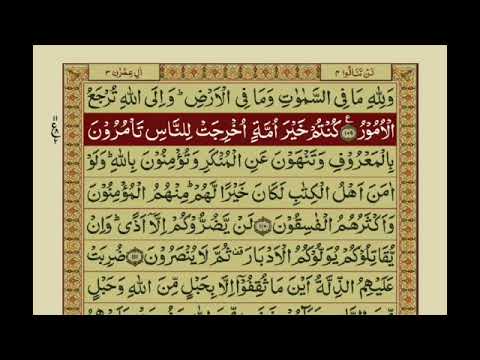 لَنْ تَنَالُوا ۴
اٰلِ عِمْرٰن ۳
وَلِلّٰهِ مَا فِی السَّمٰوٰتِ وَمَا فِی الْاَرْضِ ؕ وَاِلَی اللّٰهِ تُرْجَعُ
الْاُمُوْرُ ﴿۱۰۹﴾ ع كُنْتُمْ خَیْرَ اُمَّةٍ اُخْرِجَتْ لِلنَّاسِ تَاْمُرُوْنَ
بِالْمَعْرُوْفِ وَتَنْهَوْنَ عَنِ الْمُنْكَرِ وَتُؤْمِنُوْنَ بِاللّٰهِ ؕ وَلَوْ
اٰمَنَ اَهْلُ الْكِتٰبِ لَكَانَ خَیْرًا لَّهُمْ ؕ مِنْهُمُ الْمُؤْمِنُوْنَ
وَاَكْثَرُهُمُ الْفٰسِقُوْنَ ﴿۱۱۰﴾ لَنْ یَّضُرُّوْكُمْ اِلَّاۤ اَذًی ؕ وَاِنْ
یُّقَاتِلُوْكُمْ یُوَلُّوْكُمُ الْاَدْبَارَ ۫ ثُمَّ لَا یُنْصَرُوْنَ ﴿۱۱۱﴾ ضُرِبَتْ
عَلَیْهِمُ الذِّلَّةُ اَیْنَ مَا ثُقِفُوْۤا اِلَّا بِحَبْلٍ مِّنَ اللّٰهِ وَحَبْلٍ